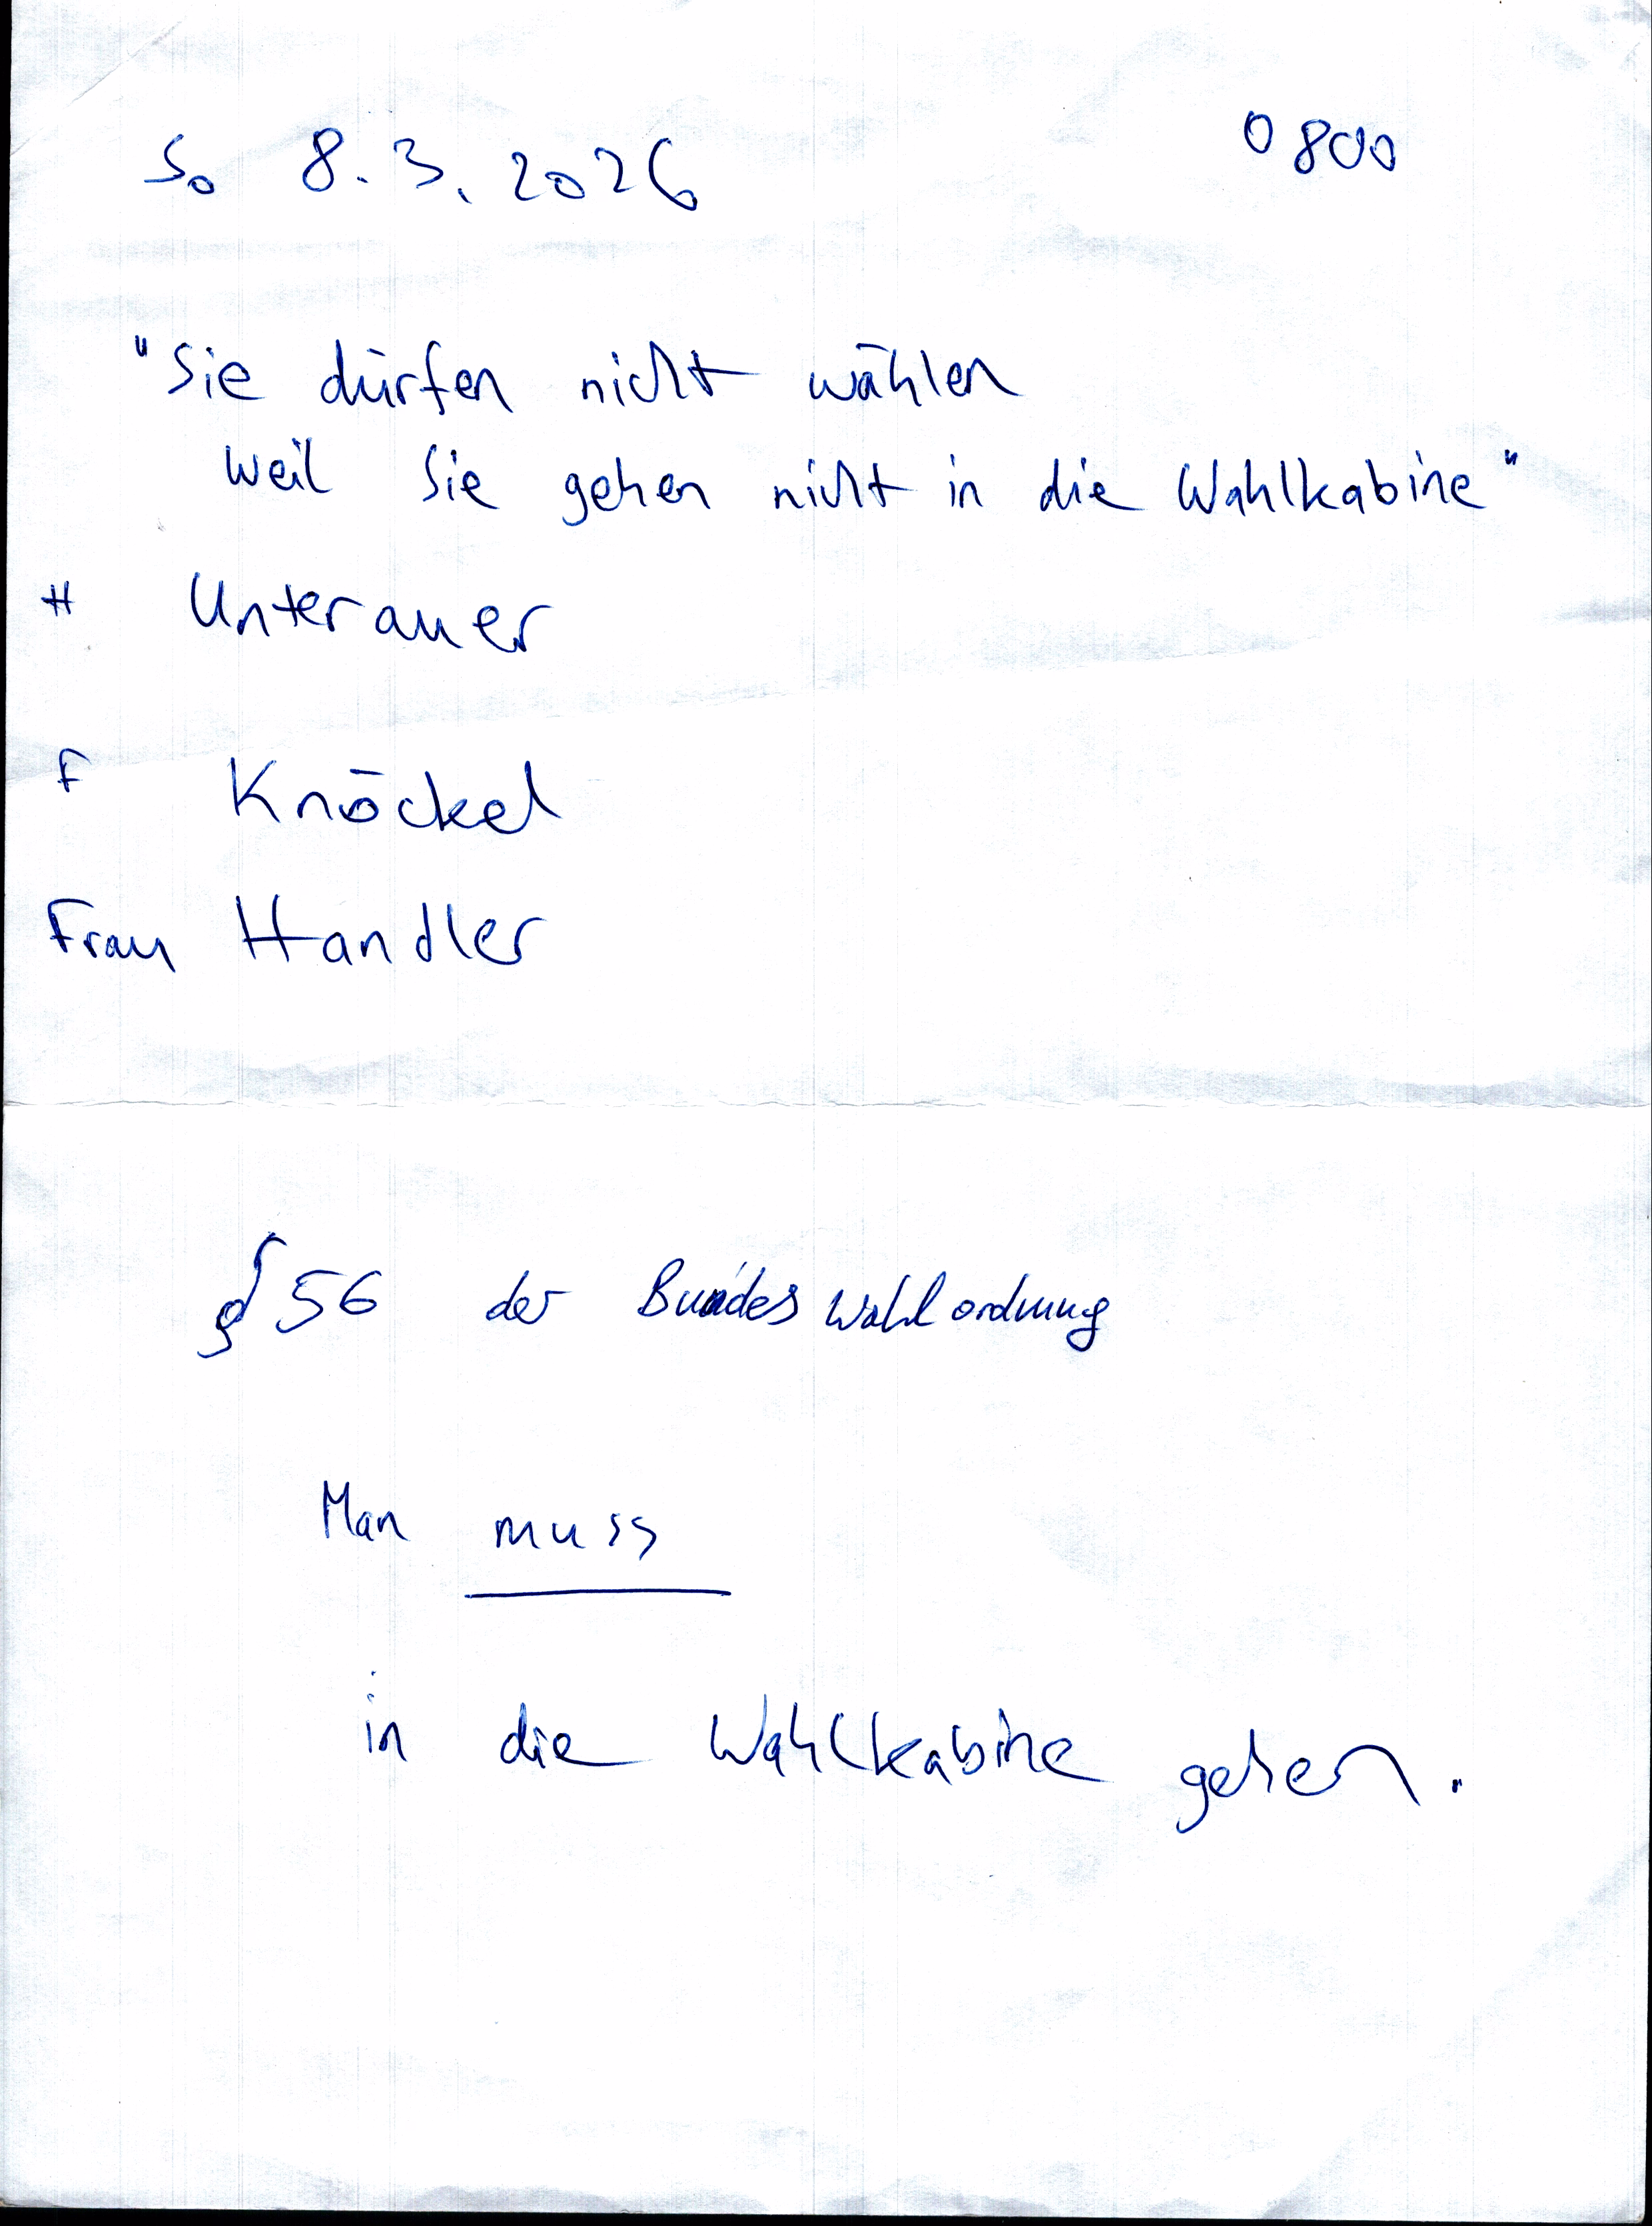 So 8.3.2026 0800
"Sie dürfen nicht wählen
weil Sie gehen nicht in die Wahlkabine"
H Unterauer
F Knöckel
Frau Handler
§ 56 der Bundeswahlordnung
Man muss
in die Wahlkabine gehen.